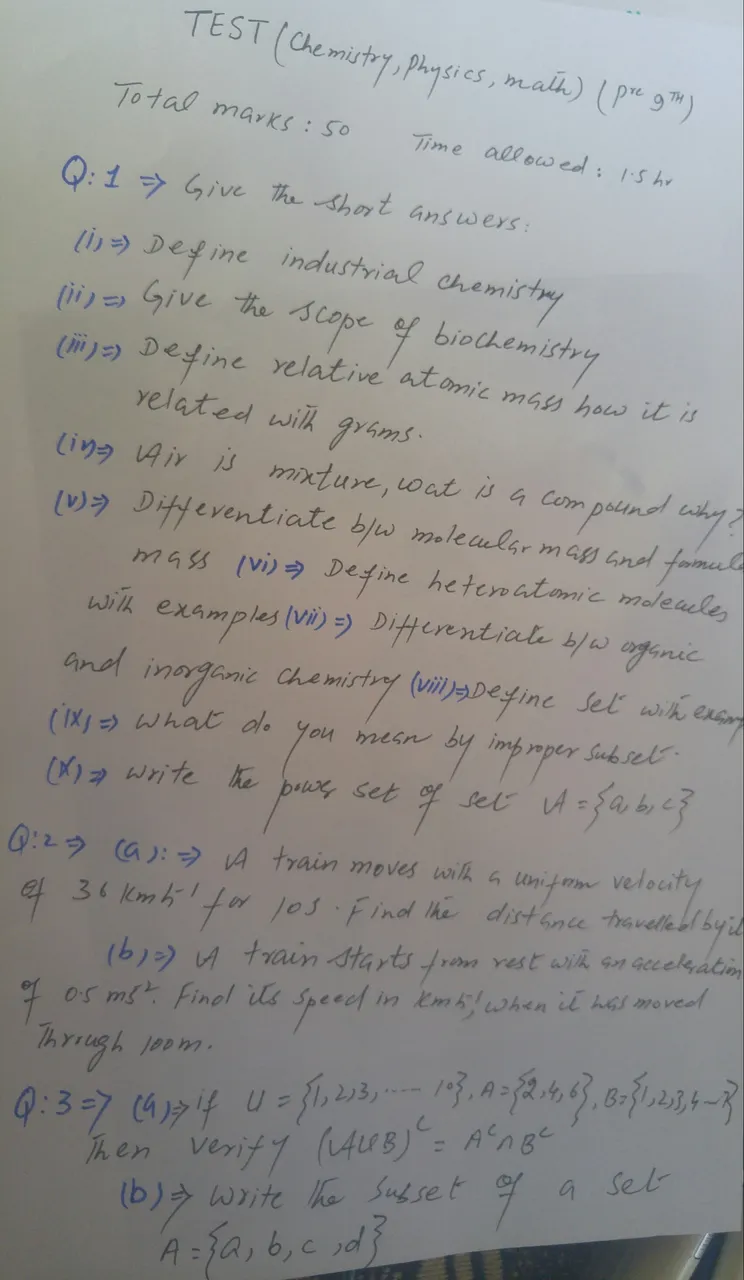 TEST (Chemistry, Physics, math) (pre 9TH)
Total marks : 50 Time allowed : 1.5 hr
Q:1 => Give the short answers:
(i) => Define industrial chemistry
(ii) => Give the scope of biochemistry
(iii) => Define relative atomic mass how it is
related with grams.
(iv) => Air is mixture, wat is a compound why?
(v) => Differentiate b/w molecular mass and formula
mass (vi) => Define heteroatomic molecules
with examples (vii) => Differentiate b/w organic
and inorganic chemistry (viii) => Define set with examp
(ix) => what do you mean by improper subset.
(x) => write the power set of set A = {a, b, c}
Q:2 => (a): => A train moves with a uniform velocity
of 36 Kmh⁻¹ for 10s. Find the distance travelled by it
(b) => A train starts from rest with an acceleration
of 0.5 ms². Find its speed in Kmh⁻¹, when it has moved
Through 100m.
Q:3 => (a) => if U = {1, 2, 3, ---- 10}, A = {2, 4, 6}, B = {1, 2, 3, 4 - 7}
Then verify (AUB)ᶜ = Aᶜ∩Bᶜ
(b) => write the subset of a set
A = {a, b, c, d}